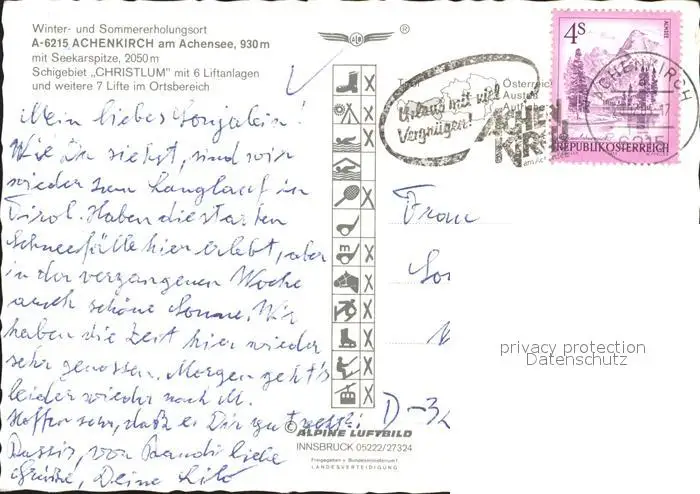 Winter- und Sommererholungsort
A-6215 ACHENKIRCH am Achensee, 930 m
mit Seekarspitze, 2050 m
Schigebiet „CHRISTLUM" mit 6 Liftanlagen
und weitere 7 Lifte im Ortsbereich
®
Mein liebes Sonjalein!
Wie Du siehst, sind wir
wieder zum Langlauf in
Tirol. Haben die starken
Schneefälle hier erlebt, aber
in der vergangenen Woche
auch schöne Sonne. Wir
haben die Zeit hier wieder
sehr genossen. Morgen geht's
leider wieder nach M.
Hoffen sehr, daß es Dir gut geht
Bussis, von liebe
Grüße, Deine Lilo
Tirol
Österreich
Urlaub mit viel
Vergnügen!
ACHEN
KIRCH
am Achensee
ACHENKIRCH
6215
4S
REPUBLIK ÖSTERREICH
Frau
D-
privacy protection
Datenschutz
© ALPINE LUFTBILD
INNSBRUCK 05222/27324
Freigegeben v. Bundesministerium f.
LANDESVERTEIDIGUNG